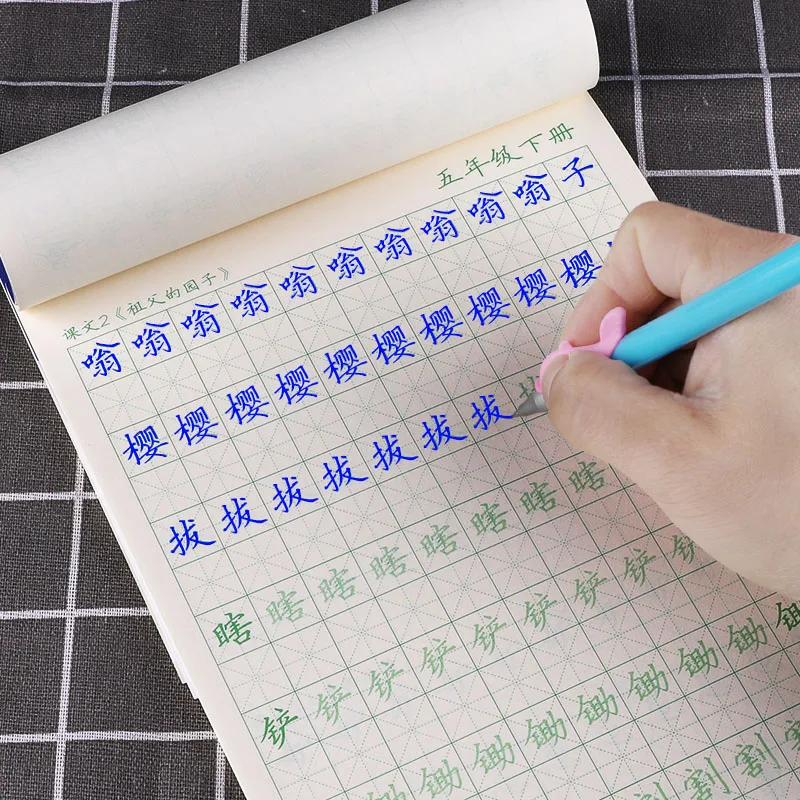 五年级下册
课文2《祖父的园子》
嗡嗡嗡嗡嗡嗡嗡嗡嗡嗡子
樱樱樱樱樱樱樱樱樱樱
拔拔拔拔拔拔拔
瞎瞎瞎瞎瞎瞎瞎瞎
铲铲铲铲铲铲铲铲铲
锄锄锄锄锄锄锄锄
割割